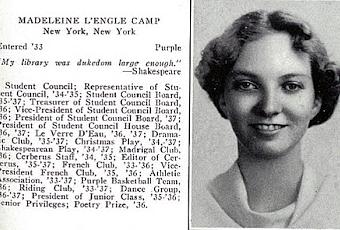 MADELEINE L'ENGLE CAMP
New York, New York
Entered '33 Purple
"My library was dukedom large enough."
—Shakespeare
Student Council; Representative of Stu-
dent Council, '34-'35; Student Council Board,
'35-'37; Treasurer of Student Council Board,
'36; Vice-President of Student Council Board,
'36; President of Student Council Board, '37;
President of Student Council House Board,
'36, '37; Le Verre D'Eau, '36, '37; Drama-
tic Club, '35-'37; Christmas Play, '34-,'37;
Shakespearean Play, '34-'37; Madrigal Club,
'36; Cerberus Staff, '34, '35; Editor of Cer-
berus, '35-'37; French Club, '33-'36; Vice-
President French Club, '35, '36; Athletic
Association, '33-'37; Purple Basketball Team,
'36; Riding Club, '33-'37; Dance Group,
'36-'37; President of Junior Class, '35-'36;
Senior Privileges; Poetry Prize, '36.